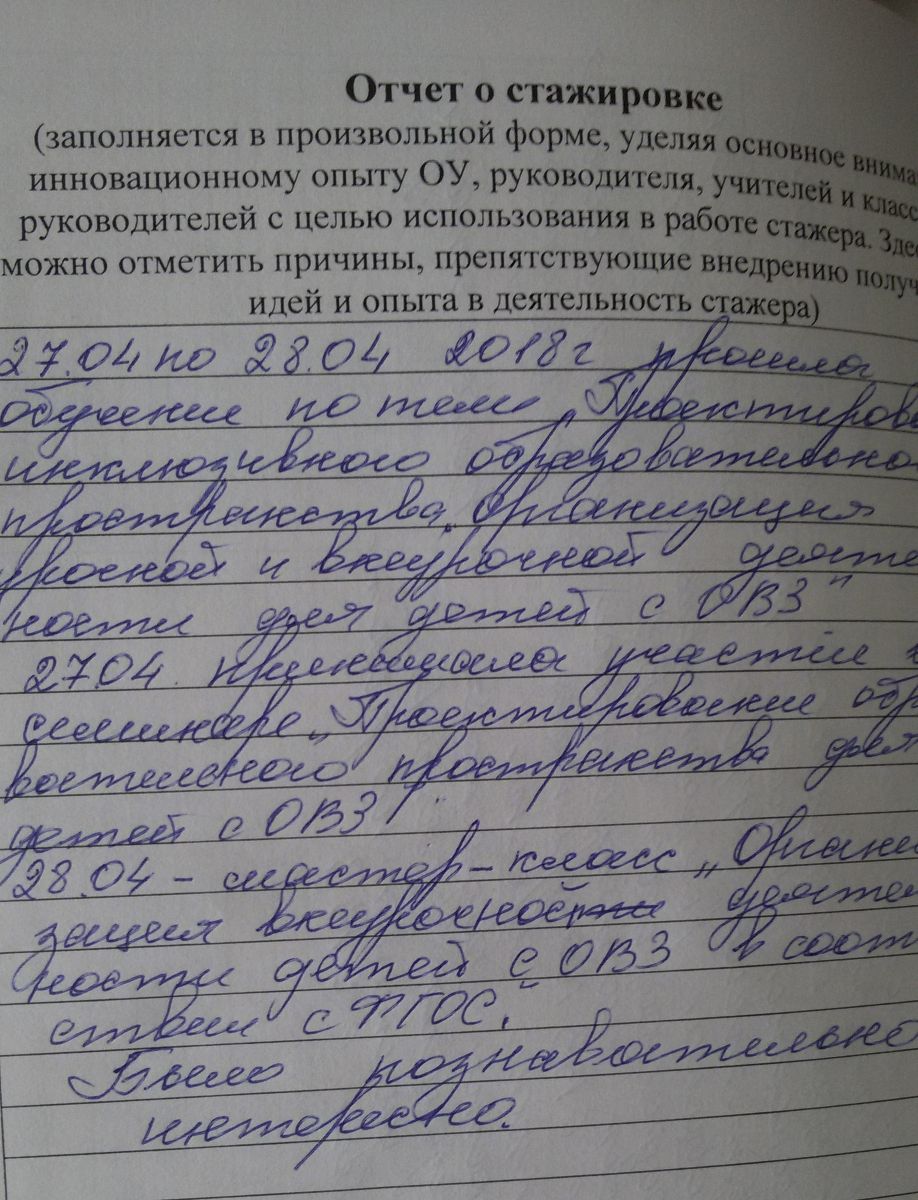 Отчет о стажировке
(заполняется в произвольной форме, уделяя основное внима
инновационному опыту ОУ, руководителя, учителей и класс
руководителей с целью использования в работе стажера. Здес
можно отметить причины, препятствующие внедрению получ
идей и опыта в деятельность стажера)
27.04 по 28.04 2018г прошла
обучение по теме „Проектирова
инклюзивного образовательно
пространства „Организация
урочной и внеурочной деяте
ности для детей с ОВЗ"
27.04. принимала участие
семинаре „Проектирование обр
вательного пространства для
детей с ОВЗ".
28.04 – мастер-класс „Органи
зация внеурочной деятел
ности детей с ОВЗ в соот
ствии с ФГОС."
Было познавательно
интересно.